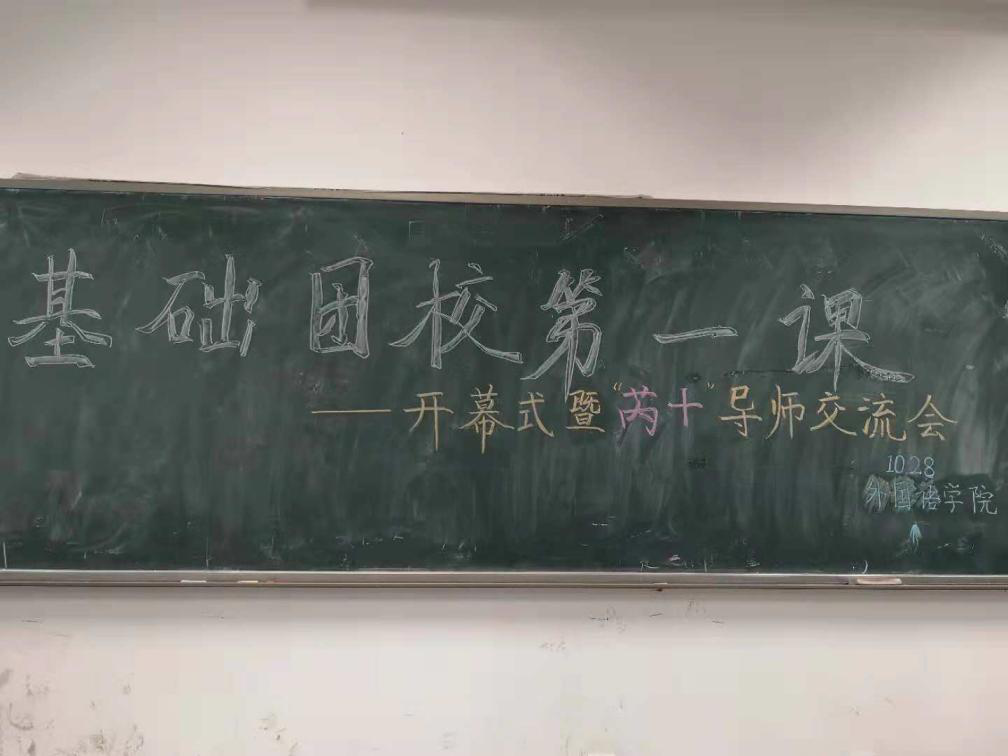 基础团校第一课
——开幕式暨“芮十”导师交流会
10.28
外国语学院